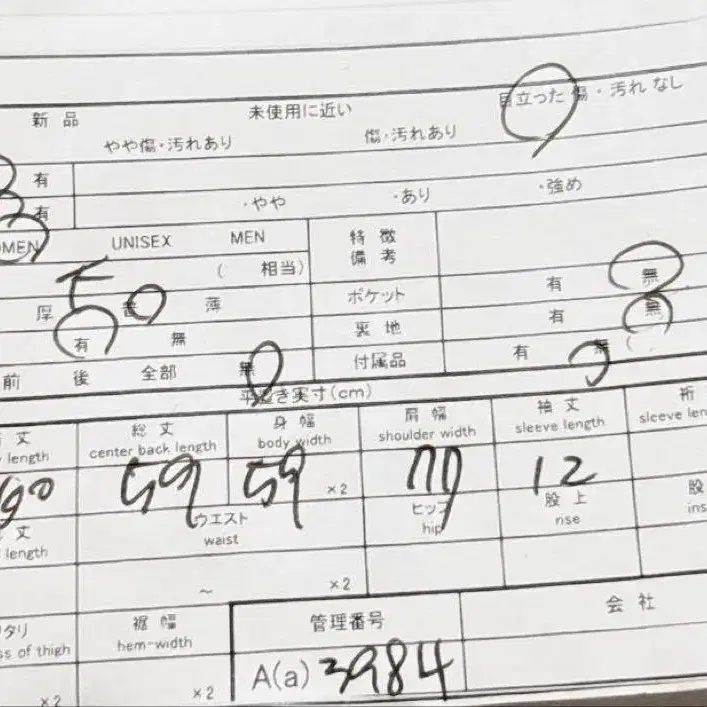 新品 未使用に近い 目立った傷・汚れなし
やや傷・汚れあり 傷・汚れあり
有
有 ・やや ・あり ・強め
OMEN UNISEX MEN 特徴
備考
( 相当)
厚 普 薄 ポケット 有 無
有 無 裏地 有 無
前 後 全部 無 付属品 有 無 (
平置き実寸(cm)
丈 総丈 身幅 肩幅 袖丈 裄
length center back length body width shoulder width sleeve length sleeve len
59 59 ×2 12
丈 ウエスト ヒップ 股上 股
length waist hip rise ins
~ ×2
タリ 裾幅 管理番号 会社
ss of thigh hem-width
×2 ×2 A(a) 3984